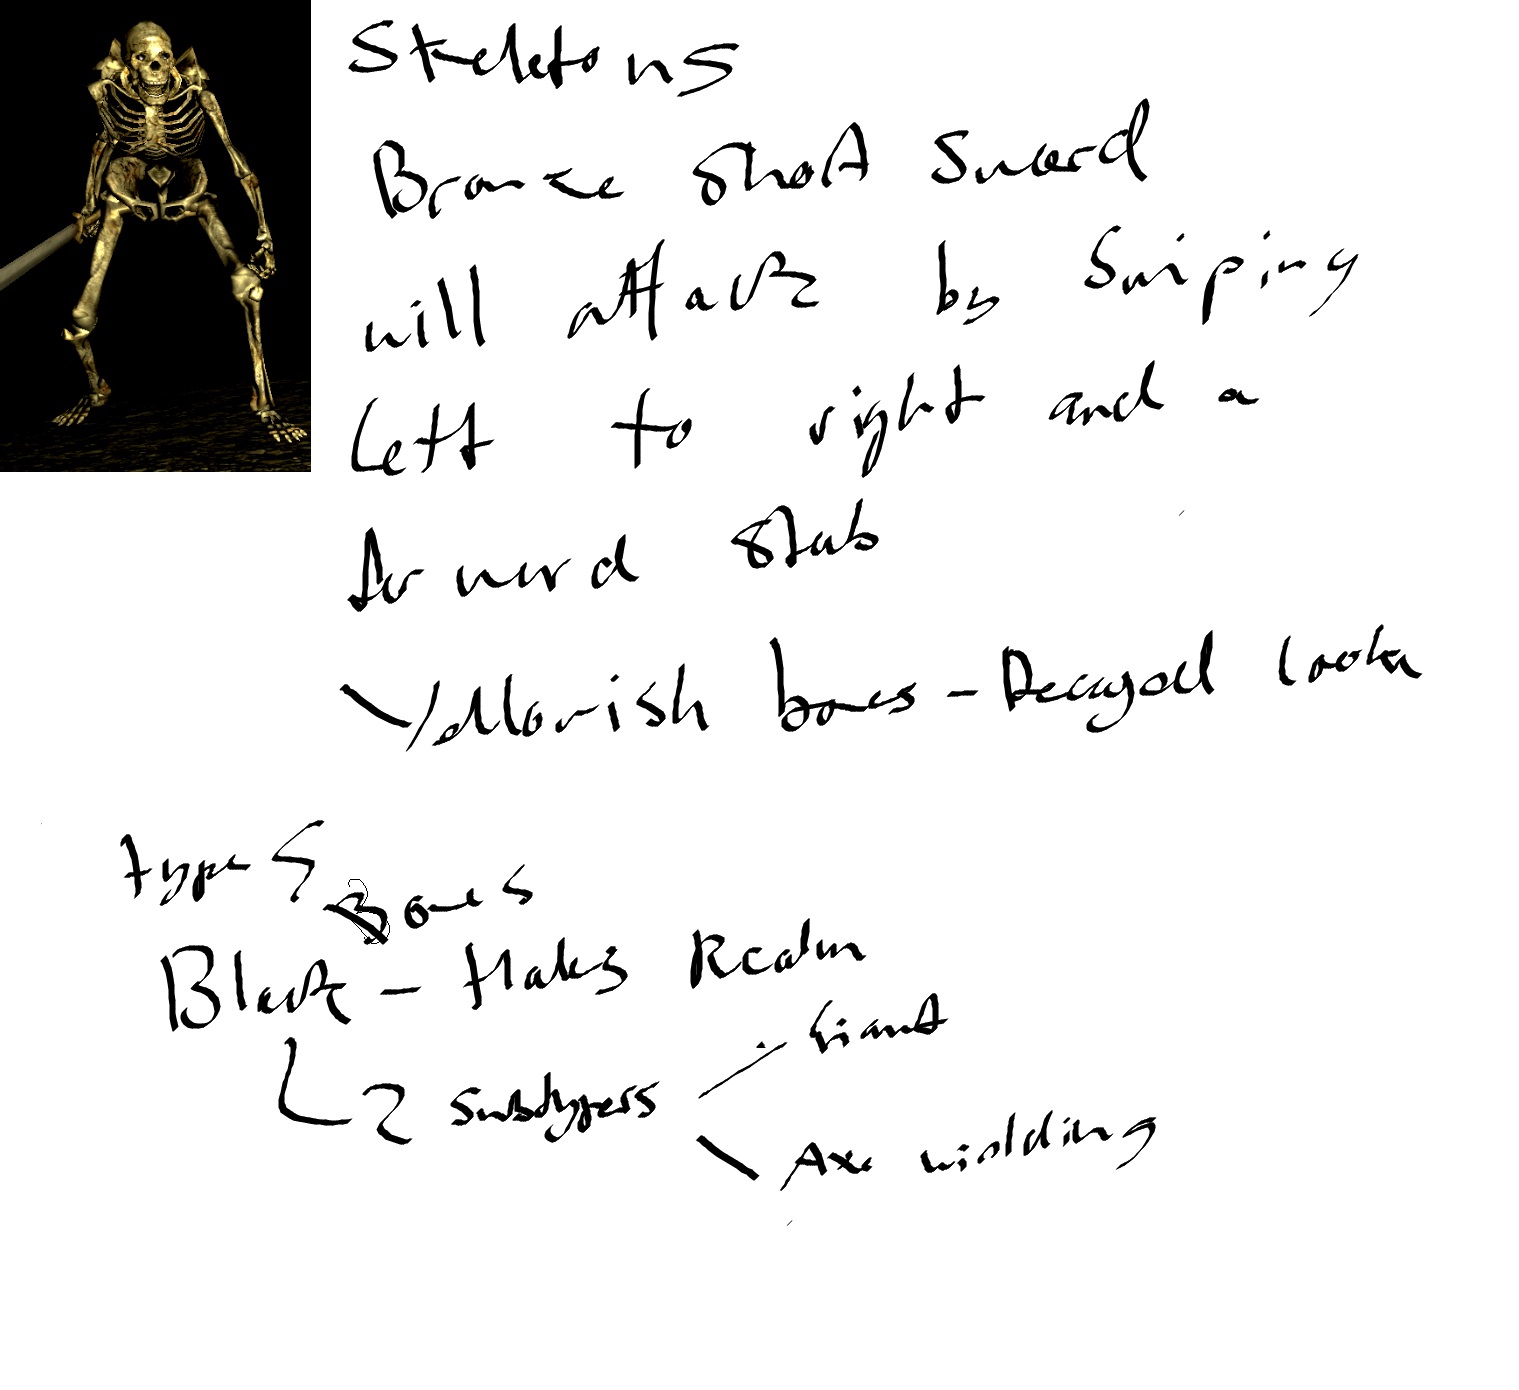 Skeletons
Bronze Short Sword
will attack by Swiping
Left to right and a
forward stab
Yellowish bones - Decayed look
types
Bones
Black - Hades Realm
2 subtypes
Giant
Axe wielding